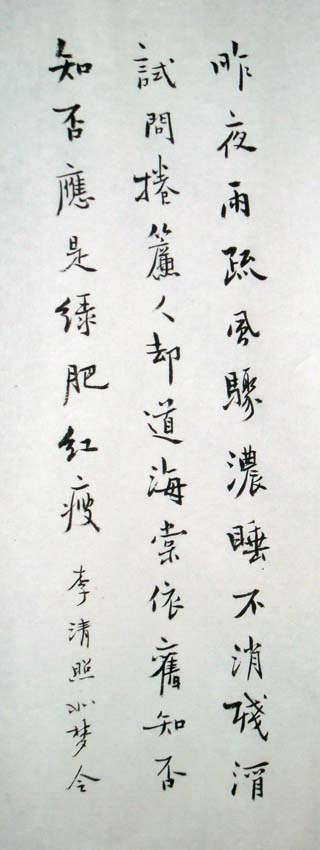 昨夜雨疏風驟濃睡不消殘酒
試問捲簾人却道海棠依舊知否
知否應是緑肥紅瘦
李清照如梦令